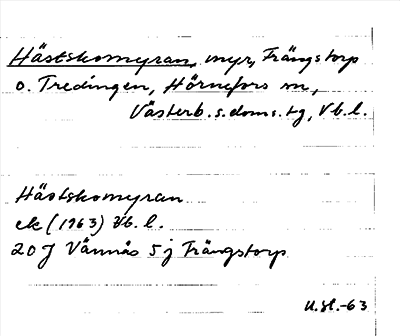 Hästskomyran, myr, Trängstorp
o. Tredingen, Hörnefors sn,
Västerb. s. doms. tg, Vb. l.
Hästskomyran
ek (1963) Vb. l.
20 J Vännäs 5 j Trängstorp
U.Sl.-63